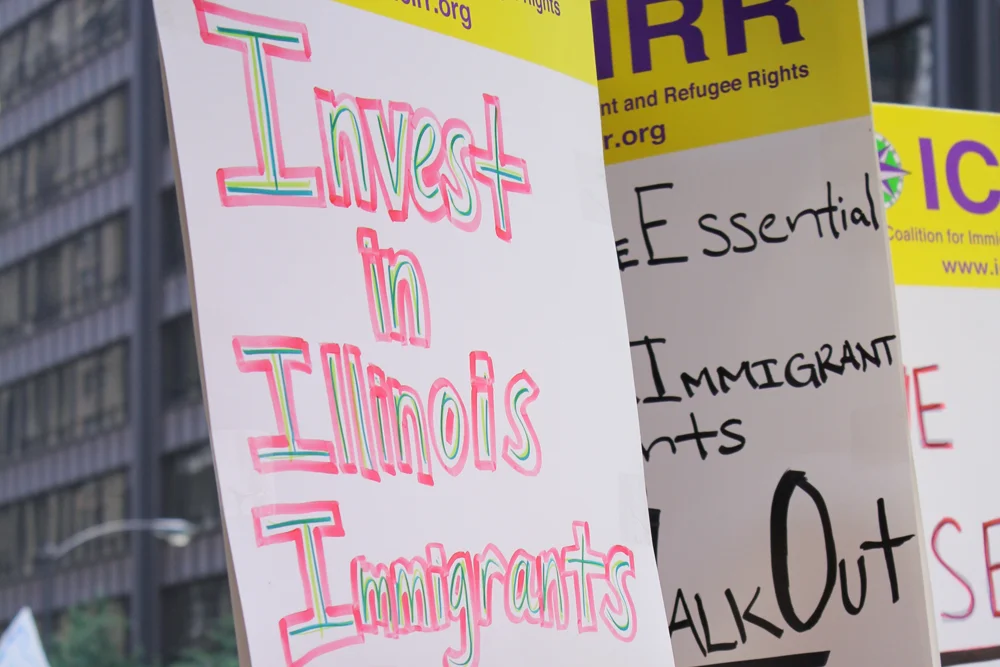 irr.org
Rights
Invest
in
Illinois
Immigrants
IRR
nt and Refugee Rights
r.org
Essential
IMMIGRANT
nts
ALKOut
IC
Coalition for Immi
www.i
E
SE